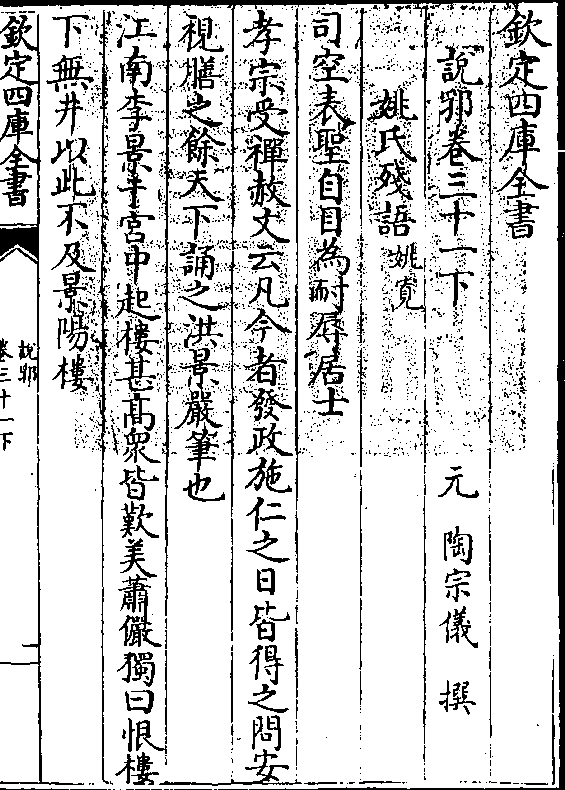 欽定四庫全書
説郛卷三十一下
元 陶宗儀 撰
姚氏殘語 姚寬
司空表聖自目為耐辱居士
孝宗受禪赦文云凡今者發政施仁之日皆得之問安
視膳之餘天下誦之洪景嚴筆也
江南李景于宫中起樓甚髙衆皆歎美蕭儼獨曰恨樓
下無井以此不及景陽樓
欽定四庫全書
説郛
卷三十一下
一